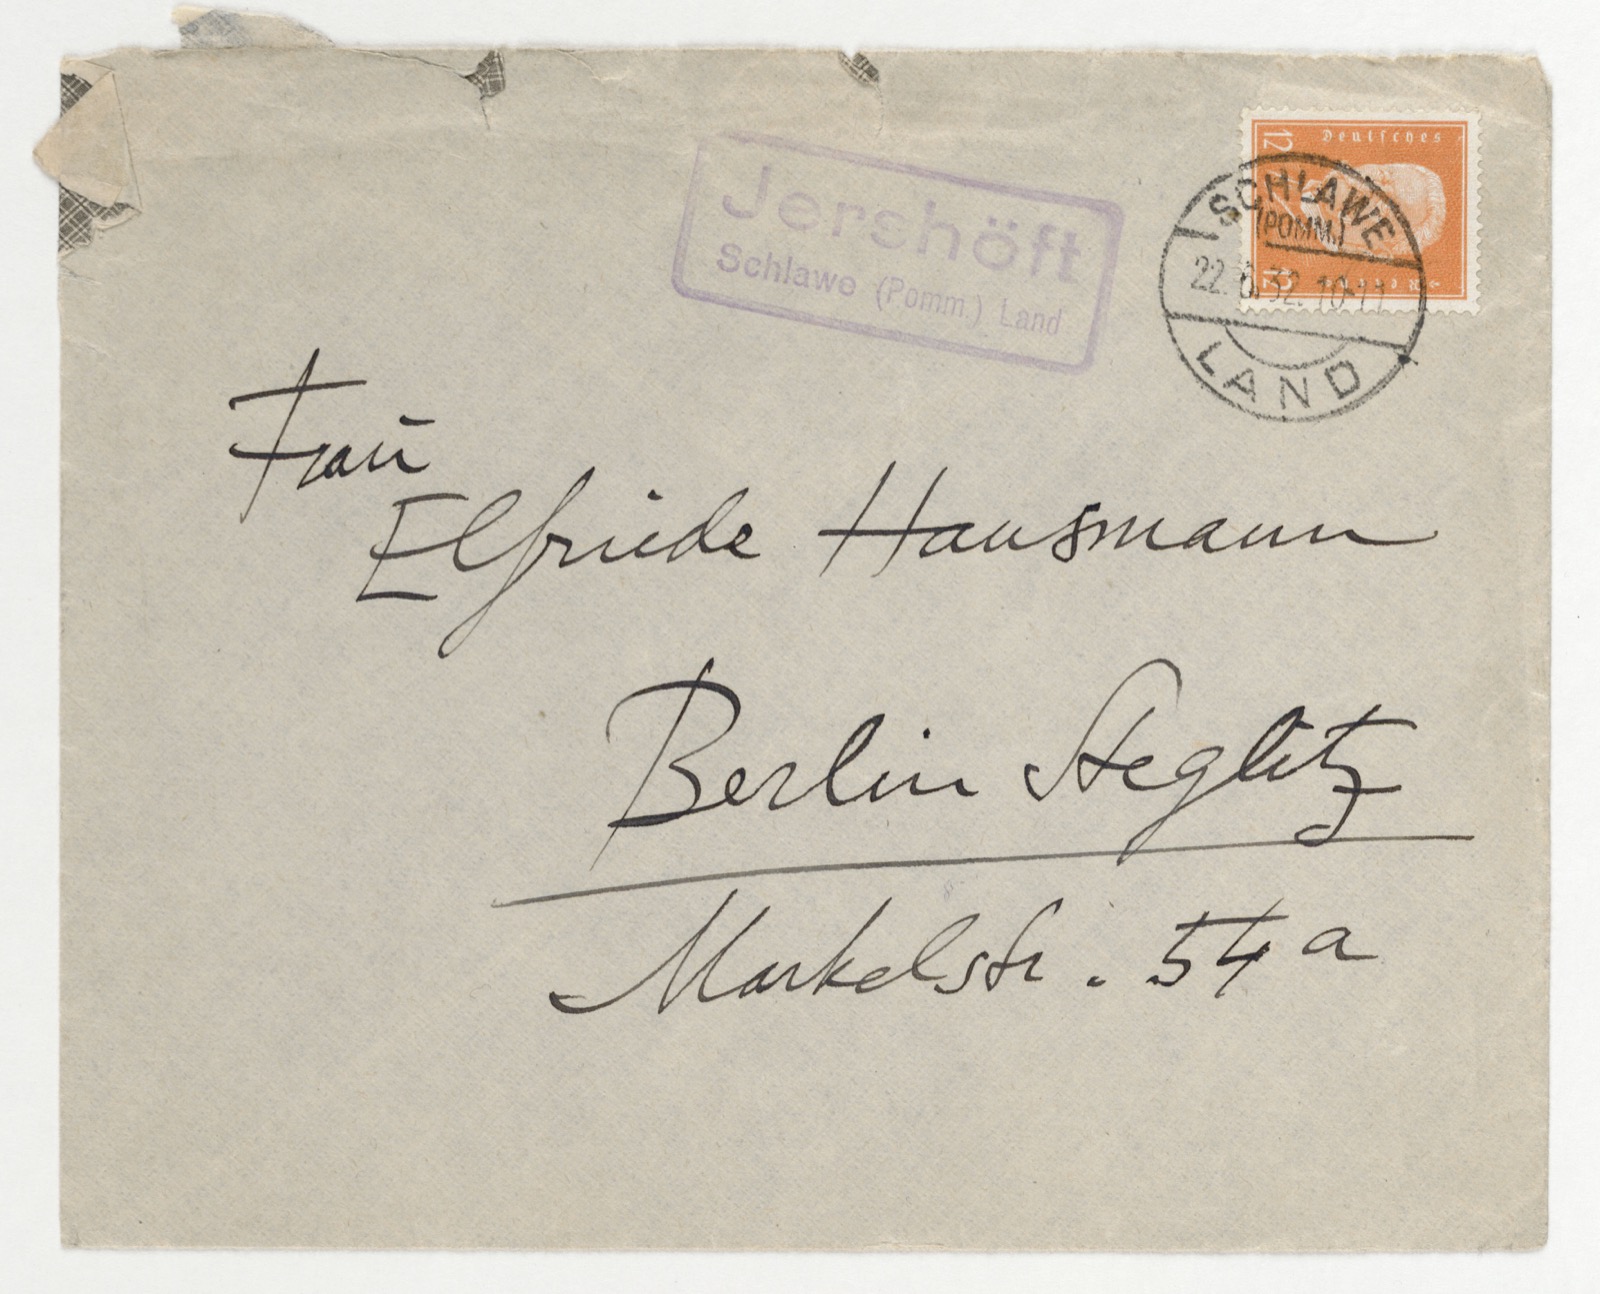 Jershöft
Schlawe (Pomm.) Land
12 Deutsches
Reich 12
SCHLAWE
(POMM.)
22.6.32. 10-11
LAND
Frau
Elfriede Hausmann
Berlin Steglitz
Markelstr. 54a